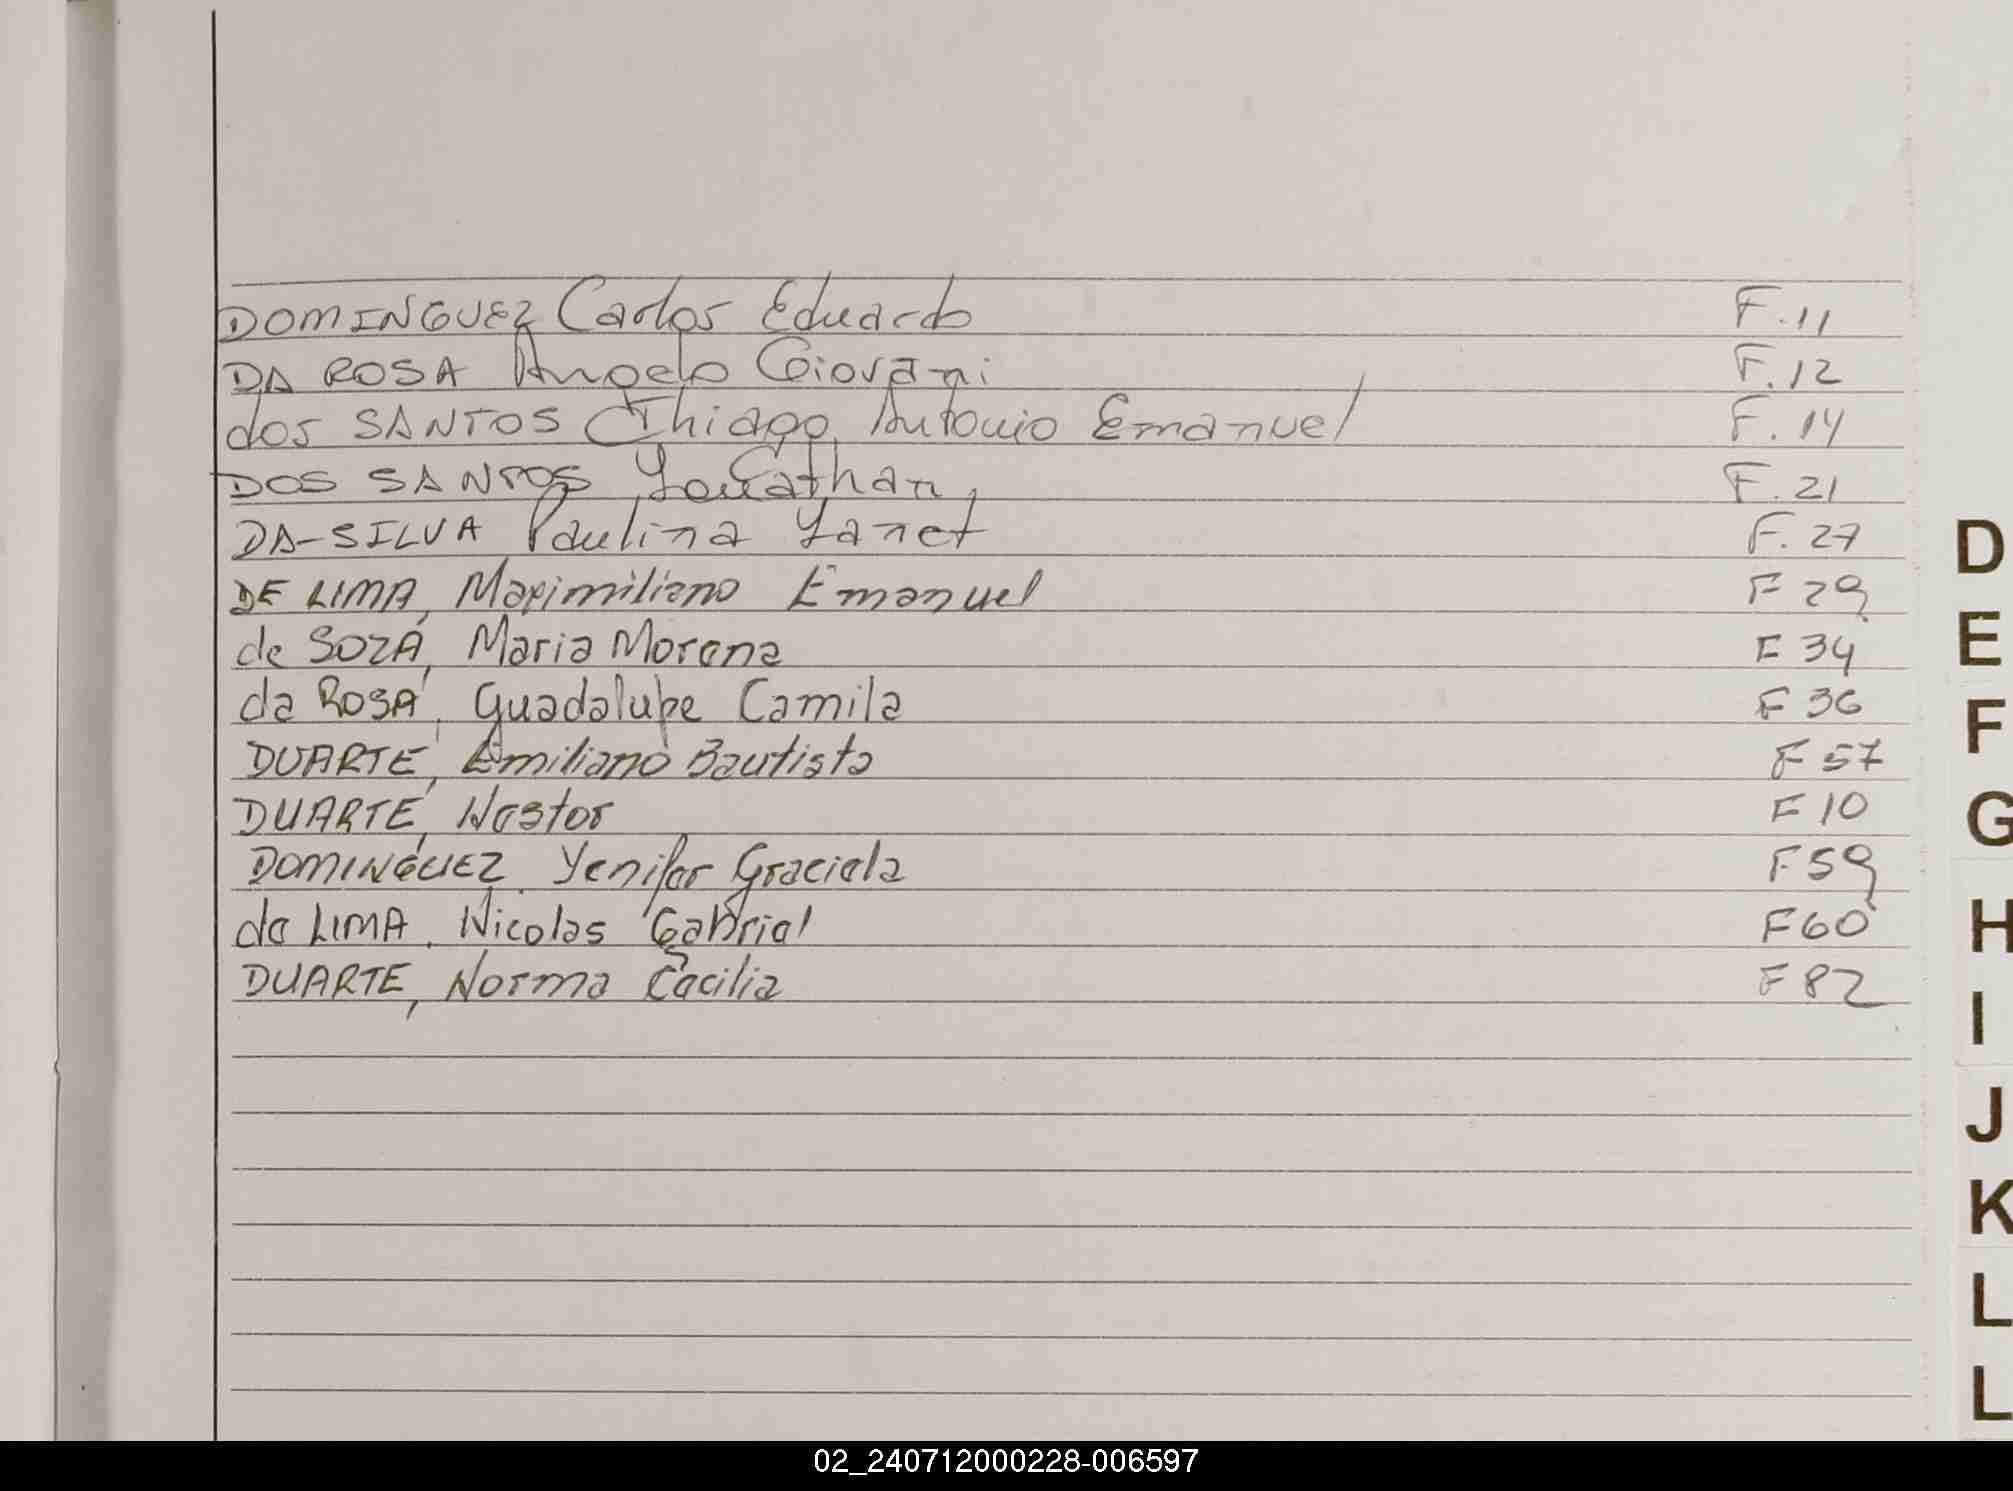 DOMINGUEZ Carlos Eduardo F.11
DA ROSA Angelo Giovani F.12
dos SANTOS Thiago Antonio Emanuel F.14
DOS SANTOS Jonathan, F.21
DA-SILVA Paulina Yanet F.27
DE LIMA, Maximiliano Emanuel F 29
de SOZA, Maria Morena F 34
da ROSA, Guadalupe Camila F 36
DUARTE, Emiliano Bautista F 57
DUARTE, Nestor F 10
DOMINGUEZ, Yenifer Graciela F 59
de LIMA, Nicolas Gabriel F 60
DUARTE, Norma Cecilia F 82
D
E
F
G
H
I
J
K
L
L
02_240712000228-006597